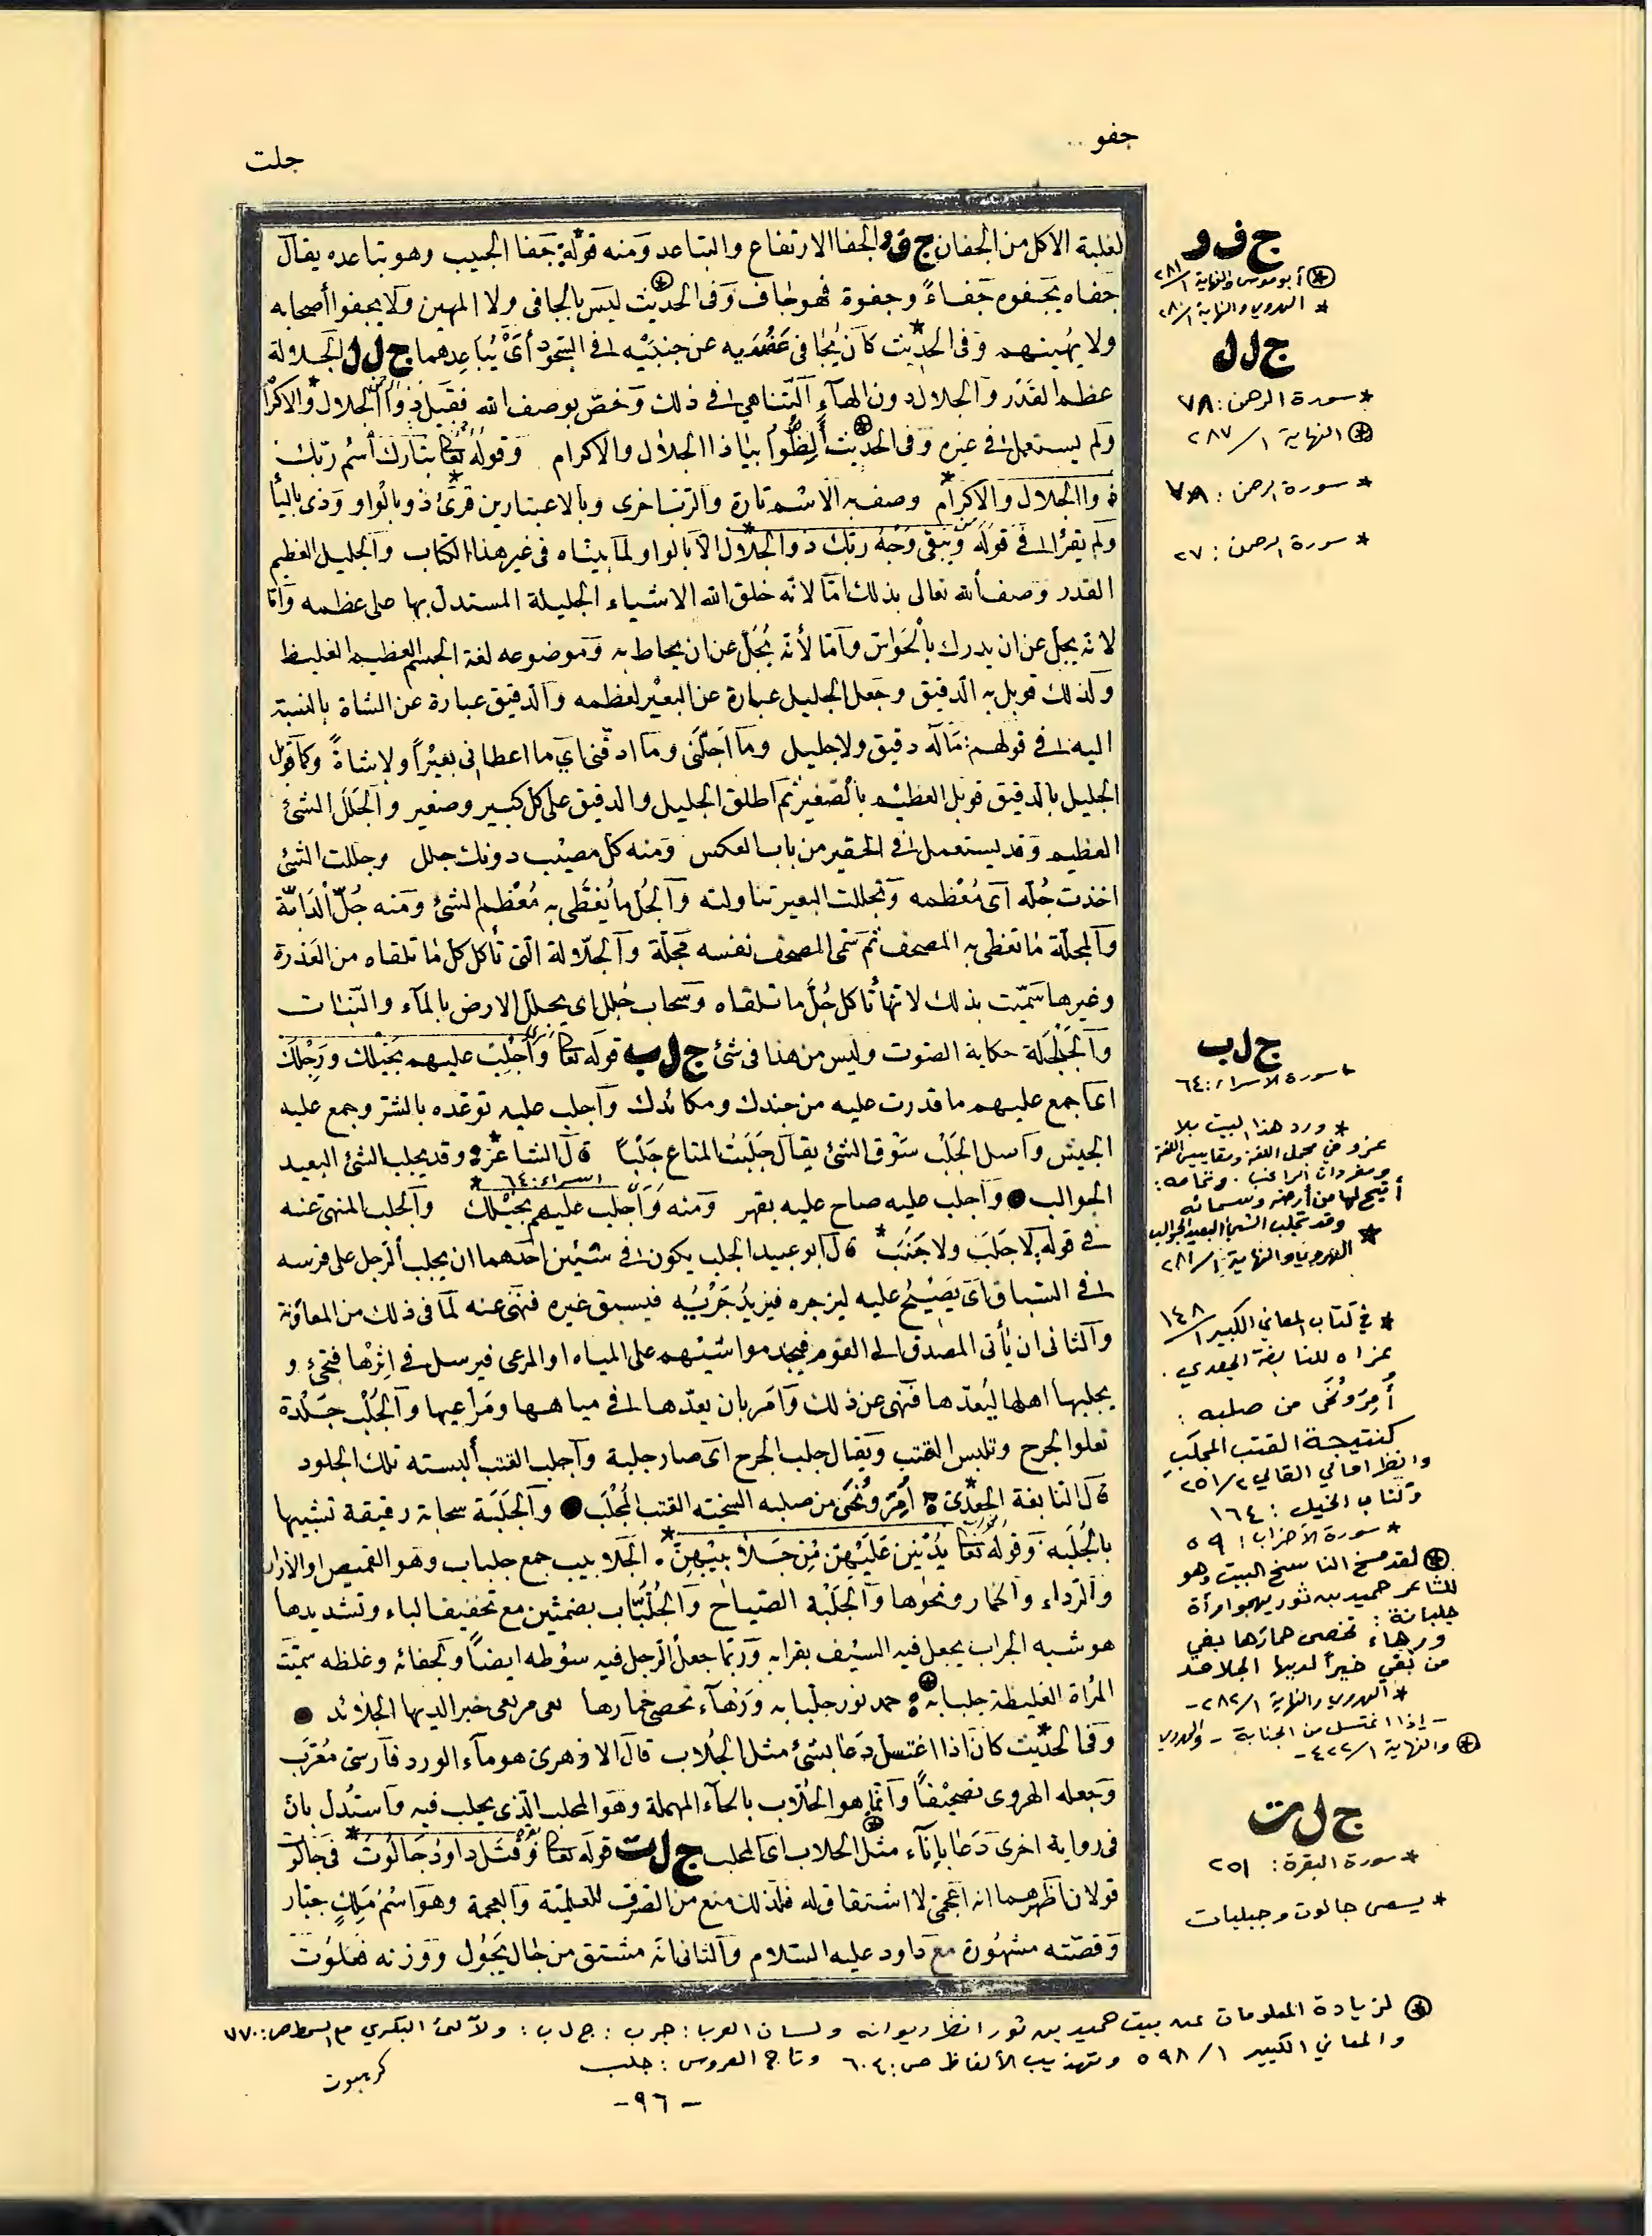 جفو
جلت
لغلبة الاكل من الجفان ج ف و الجفا الارتفاع والتباعد ومنه قوله جفا الجبيب وهو تباعده يقال
جفاه يجفوه جفاءً وجفوة فهو جاف وفى الحديث ليس بالجافى ولا المهين ولا يجفوا أصحابه
ولا يهينهم وفى الحديث كان يجافى عضديه عن جنبيه فى السجود أى يباعدهما ج ل ل الجلالة
عظم القدر والجلال دون الهاء التناهى فى ذلك وخص بوصف الله فقيل ذو الجلال والاكرام
ولم يستعمل فى غيره وفى الحديث ألظوا بياذا الجلال والاكرام وقوله تعا تبارك أسم ربك
ذو الجلال والاكرام وصف به الاسم تارة والرب اخرى وبالاعتبارين قرئ ذو بالواو وذى بالياء
ولم يقرأ فى قوله ويبقى وجه ربك ذو الجلال الا بالواو ولما بيناه فى غير هذا الكتاب والجليل العظيم
القدر وصف ألله تعالى بذلك امّا لانه خلق الله الاشياء الجليلة المستدل بها على عظمه وامّا
لانه يجلّ عن ان يدرك بالحواس وامّا لأنه يجلّ عن ان يحاط به وموضوعه لغة الجسم العظيم الغليظ
ولذلك قوبل به الدقيق وجعل الجليل عبارة عن البعير لعظمه والدقيق عبارة عن الشاة بالنسبة
اليه فى قولهم: ماله دقيق ولا جليل وما اجلّنى وما ادقّنى اي ما اعطانى بعيرًا ولا شاةً وكما قوبل
الجليل بالدقيق قوبل العظيم بالصغير ثم اطلق الجليل والدقيق على كل كبير وصغير والجلل الشئ
العظيم وقد يستعمل فى الحقير من باب العكس ومنه كل مصيب دونك جلل وجللت الشئ
اخذت جُلّه اى مُعْظمه وتجللت البعير تناولته والجُل ما يُغطّى به مُعْظم الشئ ومنه جُلّ الدابّة
والمجلّة ما تغطى به المصحف ثم سمى المصحف نفسه مجلة والجلّالة التى تأكل كل ما تلقاه من العذرة
وغيرها سمّيت بذلك لانها تأكل جُلّ ما تلقاه وسحاب مجلل اى يجلل الارض بالماء والنبات
والجلجلة حكاية الصوت وليس من هذا فى شئ ج ل ب قوله تعا وأجلب عليهم بخيلك ورجلك
اى اجمع عليهم ما قدرت عليه من جندك ومكائدك واجلب عليه توعّده بالشر وجمع عليه
الجيش واصل الجلب سوق الشئ يقال جلبت المتاع جلبًا قال الشاعر وقد يجلب الشئ البعيد
اسراء: ٦٤ *
الجوالب واجلب عليه صاح عليه بقهر ومنه وأجلب عليهم بخيلك والجلب المنهى عنه
فى قوله لا جلب ولا جنب قال ابو عبيد الجلب يكون فى شيئين احدهما ان يجلب الرجل على فرسه
فى السباق اى يصيح عليه ليزجره فيزيد جريه فيسبق غيره فنهى عنه لما فى ذلك من المعاونة
والثانى ان يأتى المصدق الى القوم فيجد مواشيهم على المياه او المرعى فيرسل فى اثرها فتجئ و
يجلبها اهلها ليعدّها فنهى عن ذلك وامر بان يعدّها فى مياهها ومراعيها والجُلْب جلدة
تعلوا الجرح وتلبس القتب ويقال جلب الجرح اى صار جلبة واجلب القتب ألبسته تلك الجلود
قال النابغة الجعدى أمرّ ونُحّى من صلبه القتب المجلب والجلبة سحابة رقيقة تشبيها
بالجُلبة وقوله تعا يدنين عليهن من جلابيبهن الجلابيب جمع جلباب وهو القميص او الازار
والرداء والخمار ونحوها والجلبة الصياح والجُلبّاب بضمتين مع تخفيف الباء وتشديدها
هو شبه الجراب يجعل فيه السيف بقرابه وربما جعل الرجل فيه سوطه ايضًا ولجفائه وغلظه سميت
المرأة الغليظة جلبابة حمد نور جلبابه ورهاء تحصى خمارها خير الديها الجلائد
وفى الحديث كان اذا اغتسل دعا بشئ مثل الجلاب قال الازهرى هو ماء الورد فارسى معرب
وجعله الهروى تصحيفًا وانما هو الحلاب بالحاء المهملة وهو المحلب الذى يحلب فيه واستدل بان
فى رواية اخرى دعا بإناء مثل الحلاب اى المحلب ج ل ت قوله تعا وقتل داود جالوت فى جالوت
قولان اظهرهما انه اعجمى لا اشتقاق له فلذلك منع من الصرف للعلمية والعجمة وهو اسم ملك جبّار
وقصّته مشهورة مع داود عليه السلام والثانى انه مشتق من جال يجول ووزنه فعلوت
ج ف و
أبو موسى والنهاية ١/ ٢٨١
* الهروي والنهاية ١/ ٢٨٠
ج ل ل
* سورة الرحمن: ٧٨
النهاية ١/ ٢٨٧
* سورة الرحمن: ٧٨
* سورة الرحمن: ٢٧
ج ل ب
* سورة الاسراء: ٦٤
* ورد هذا البيت بلا
عزو في مجمل اللغة ومقاييس اللغة
ومفردات الراغب. وتمامه:
أتيح لها من أرضه وسمائه
وقد تجلب الشيء البعيد الجوالب
* الهروي والنهاية ١/ ٢٨١
* في كتاب المعاني الكبير ١/ ١٤٨
عزاه للنابغة الجعدي.
أُمِرّ ونُحِّي من صلبه:
كنتيجة القتب المجلب
وانظر امالي القالي ٢/ ٢٥١
وكتاب الخيل: ١٦٤
* سورة الأحزاب: ٥٩
لقد مسخ الناسخ البيت وهو
للشاعر حميد بن ثور يهجو امرأة
جلبانة:
ورهاء تخصى حمارها بفي
من بغى خيراً لديها الجلامد
* الهروي والنهاية ١/ ٢٨٢ -
- إذا اغتسل من الجنابة - والهروي
والنهاية ١/ ٤٢٢ -
ج ل ت
* سورة البقرة: ٢٥١
* يسمى جالوت وجبليات
لزيادة المعلومات عن بيت حميد بن ثور انظر ديوانه ولسان العرب: جرب: ج ل ب: ولآلئ البكري مع السمط ص: ٧٧٠
والمعاني الكبير ١/ ٥٩٨ وتهذيب الألفاظ ص: ٦٠٤ وتاج العروس: جلب
- ٩٦ -